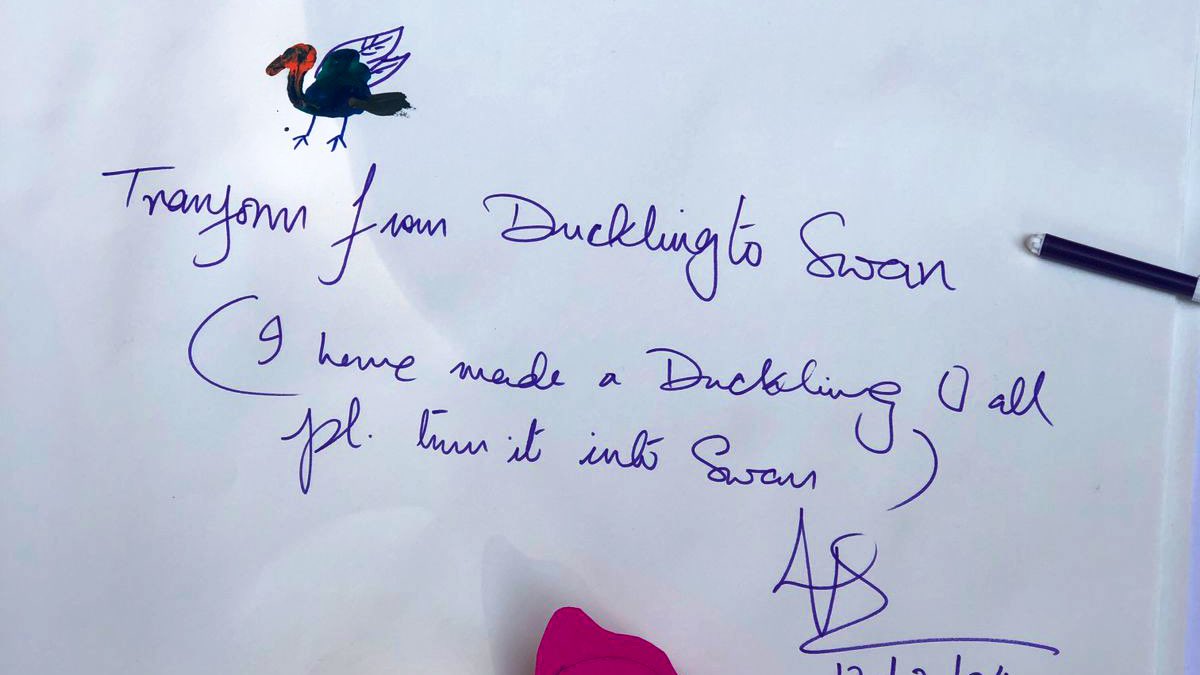 Transform from Duckling to Swan
(I have made a Duckling U all
pl. turn it into Swan)
AS